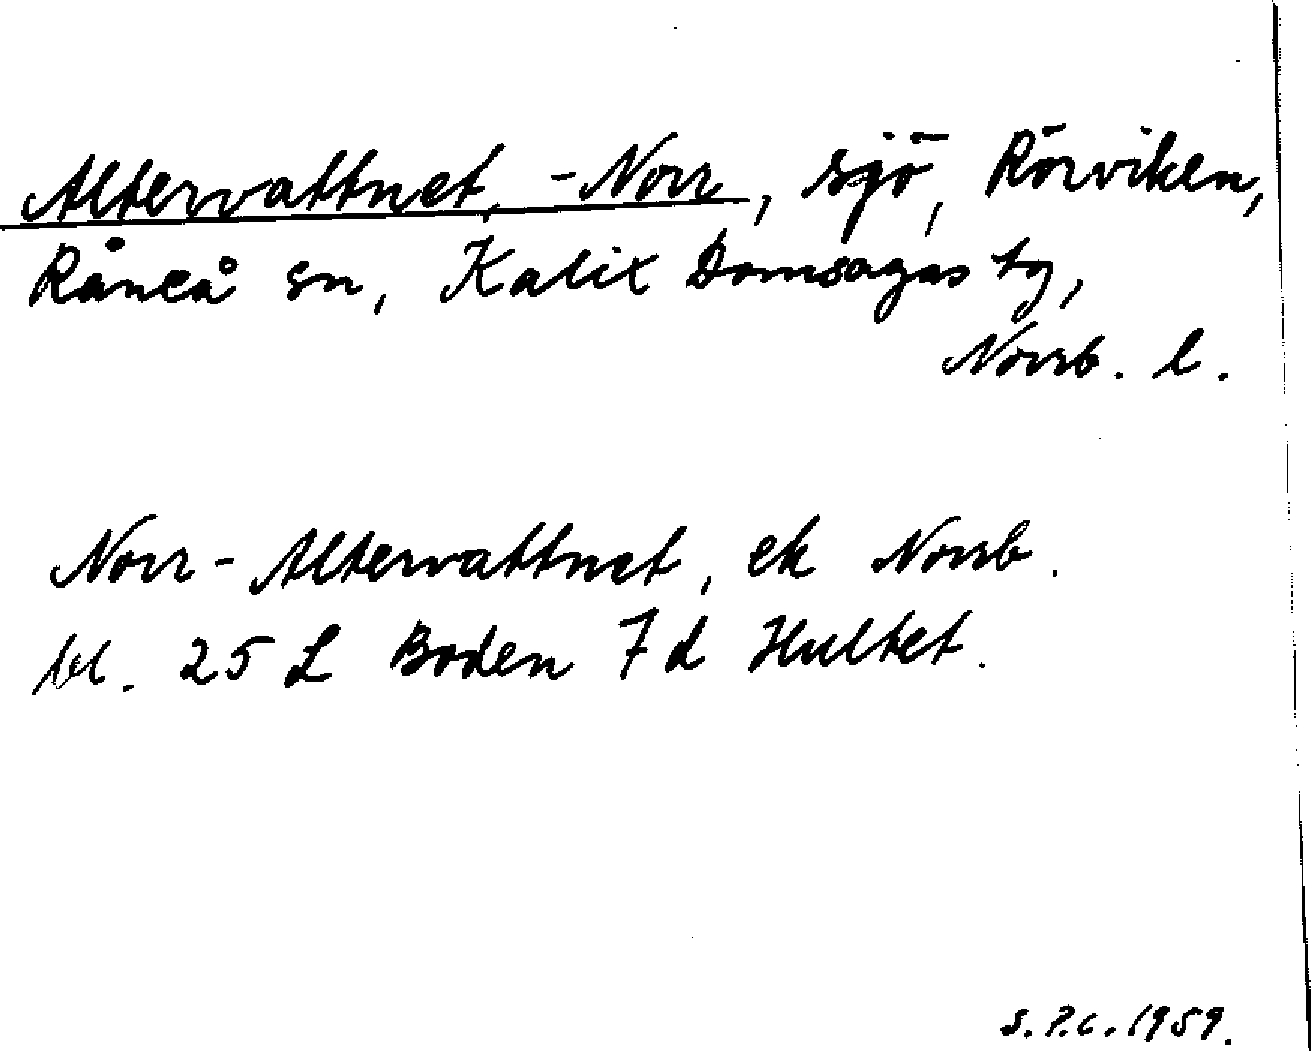 Altervattnet, -Norr, sjö, Rörviken,
Råneå sn, Kalix Domsagas tg,
Norrb. l.
Norr-Altervattnet, ek Norrb.
bl. 25 L Boden 7 d Hultet.
S.P.C. 1959.